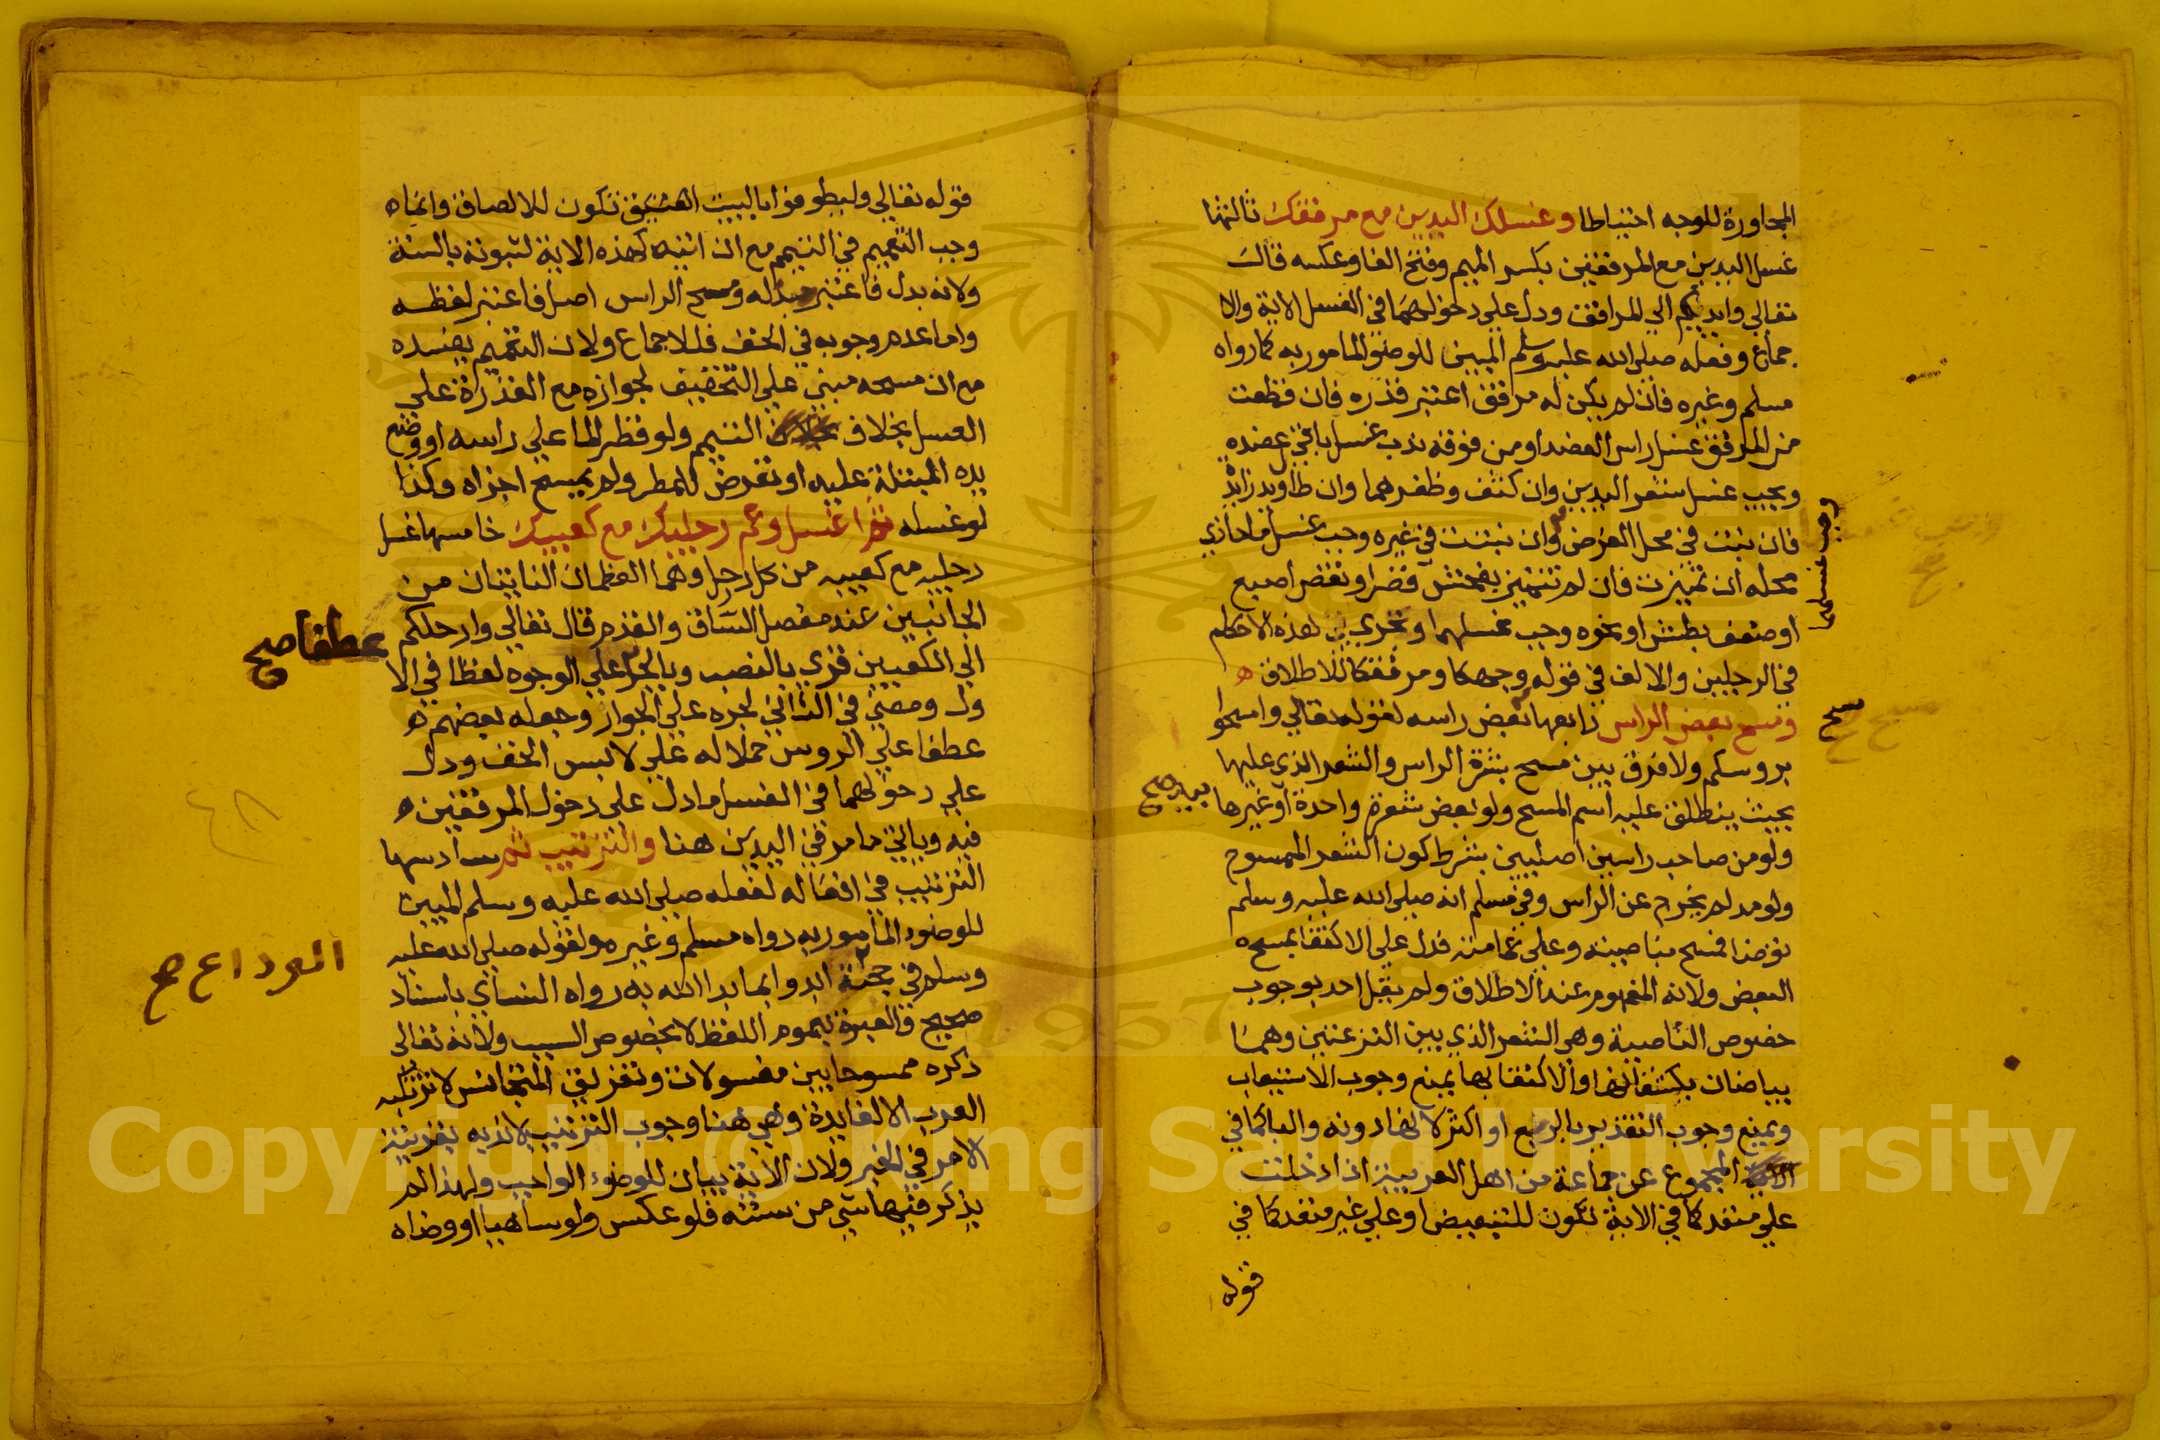 المجاورة للوجه احتياطا وغسلك اليدين مع مرفقك ثالثها
غسل اليدين مع المرفقين بكسر الميم وفتح الفا وعكسه قال
تعالي وايديكم الي المرافق ودل علي دخولهما في الغسل الاية والا
جماع وفعله صلي الله عليه وسلم المبين للوضو المامور به كما رواه
مسلم وغيره فان لم يكن له مرفق اعتبر قدره فان قطعت
من المرفق غسل راس العضد او من فوقه ندب غسل باقي عضده
ويجب غسل شعر اليدين وان كثف وظفرهما وان طال ويد زايدة
فان نبتت في محل الفرض وان نبتت في غيره وجب غسل ما حاذي
وجب غسلها
محله ان تميزت فان لم تتميز بفحش قصر او نقص اصبع
او ضعف بطش او نحوه وجب غسلهما وتجري هذه الاحكام
في الرجلين والالف في قوله وجهكا ومرفقكا للاطلاق ه
ومسح بعض الراس رابعها بعض راسه لقوله تعالي وامسحوا
مسح
بروسكم ولا فرق بين مسح بشرة الراس والشعر الذي عليها
بحيث ينطلق عليه اسم المسح ولو بعض شعرة واحدة او غيرها
ولو من صاحب راسين اصليين بشرط كون الشعر الممسوح
ولو مد لم يخرج عن الراس وفي مسلم انه صلي الله عليه وسلم
توضا فمسح بناصيته وعلي عمامته فدل علي الاكتفا بمسح
البعض ولانه المفهوم عند الاطلاق ولم يقل احد بوجوب
خصوص الناصية وهي الشعر الذي بين النزعتين وهما
بياضان يكتنفانها والاكتفا بها يمنع وجوب الاستيعاب
ويمنع وجوب التقدير بالربع او اكثر لانها دونه والبا كما في
المجموع عن جماعة من اهل العربية اذا دخلت
علي متعدد كما في الاية تكون للتبعيض او علي غير متعدد كما في
قوله
قوله تعالي وليطوفوا بالبيت العتيق تكون للالصاق وانما ه
وجب التعميم في التيمم مع ان ايته كهذه الاية لثبوته بالسنة
ولانه بدل فاعتبر مبدله ومسح الراس اصل فاعتبر لفظه
واما عدم وجوبه في الخف فللاجماع ولان التعميم يفسده
مع ان مسحه مبني علي التخفيف لجوازه مع القدرة علي
الغسل بخلاف التيمم ولو قطر الما علي راسه او وضع
يده المبتلة عليه او تعرض للمطر ولم يمسح اجزاه وكذا
لو غسله ثم اغسل وعم رجليك مع كعبيك خامسها غسل
رجليه مع كعبيه من كل رجل وهما العظمان الناتيان من
الجانبين عند مفصل الساق والقدم قال تعالي وارجلكم
عطفا صح
الي الكعبين قري بالنصب وبالجر علي الوجوه لفظا في الا
ول ومعني في الثاني لجره علي الجوار وجعله بعضهم ه
عطفا علي الروس حملا له علي لابس الخف ودل
علي دخولهما في الغسل ما دل علي دخول المرفقين ه
فيه وياتي ما مر في اليدين هنا والترتيب ثم سادسها
الترتيب في افعاله لفعله صلي الله عليه وسلم المبين
للوضوء المامور به رواه مسلم وغيره ولقوله صلي الله عليه
الوداع صح
وسلم في حجة ابدوا بما بدا الله به رواه النساي باسناد
صحيح والعبرة بعموم اللفظ لا بخصوص السبب ولانه تعالي
ذكره ممسوحا بين مغسولات وتفريق المتجانس لا ترتكبه
العرب الا لفايدة وهي هنا وجوب الترتيب لا ندبه بقرينة
الامر في الخبر ولان الاية بيان للوضوء الواجب ولهذا لم
يذكر فيها شي من سننه فلو عكس ولو ساهيا او وضاه